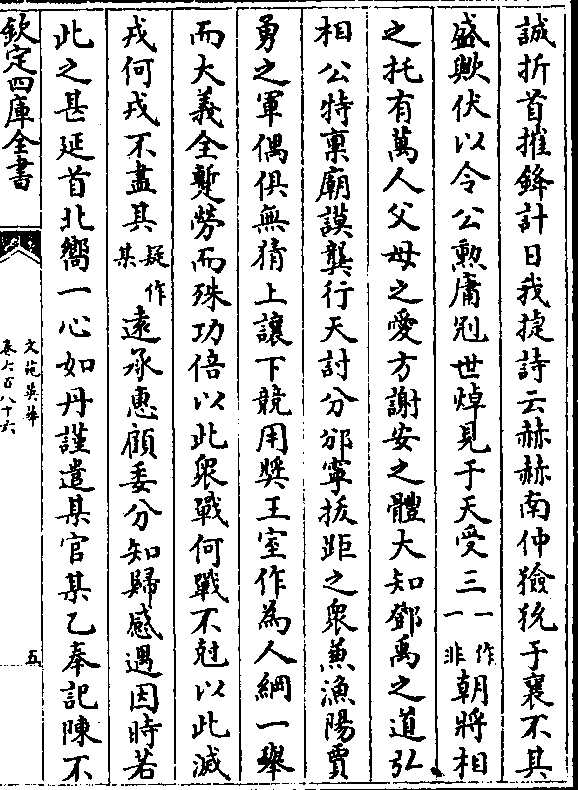 誠折首摧鋒計日我捷詩云赫赫南仲獫狁于襄不其
盛歟伏以令公勲庸冠世焯見于天受三一作一非朝將相
之托有萬人父母之愛方謝安之體大知鄧禹之道弘
相公特禀廟謨龔行天討分邠寧拔距之衆兼漁陽賈
勇之軍偶俱無猜上讓下競用奬王室作為人綱一舉
而大義全蹔勞而殊功倍以此衆戰何戰不尅以此滅
戎何戎不盡其疑作某遠承惠顧委分知歸感遇因時若
此之甚延首北嚮一心如丹謹遣某官某乙奉記陳不
欽定四庫全書
文苑英華
卷六百八十六
五